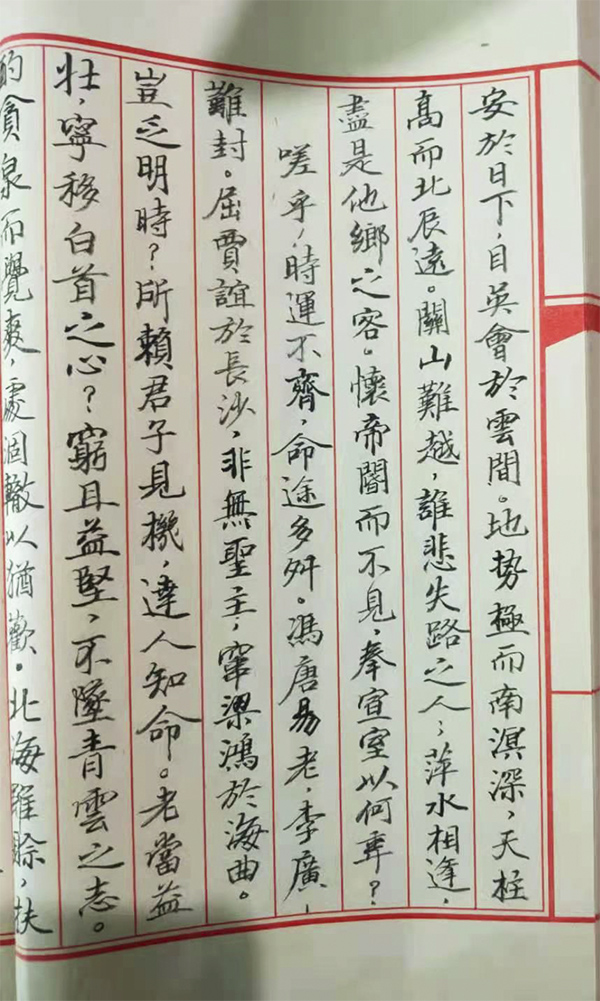 安於日下，目英會於雲間。地势極而南溟深，天柱
高而北辰遠。關山難越，誰悲失路之人；萍水相逢，
盡是他鄉之客。懷帝閽而不見，奉宣室以何年？
嗟乎！時運不齊，命途多舛。馮唐易老，李廣
難封。屈賈誼於長沙，非無聖主，竄梁鴻於海曲。
豈乏明時？所賴君子見機，達人知命。老當益
壮，寧移白首之心？窮且益堅，不墜青雲之志。
酌貪泉而覺爽，處涸轍以猶歡。北海雖賒，扶